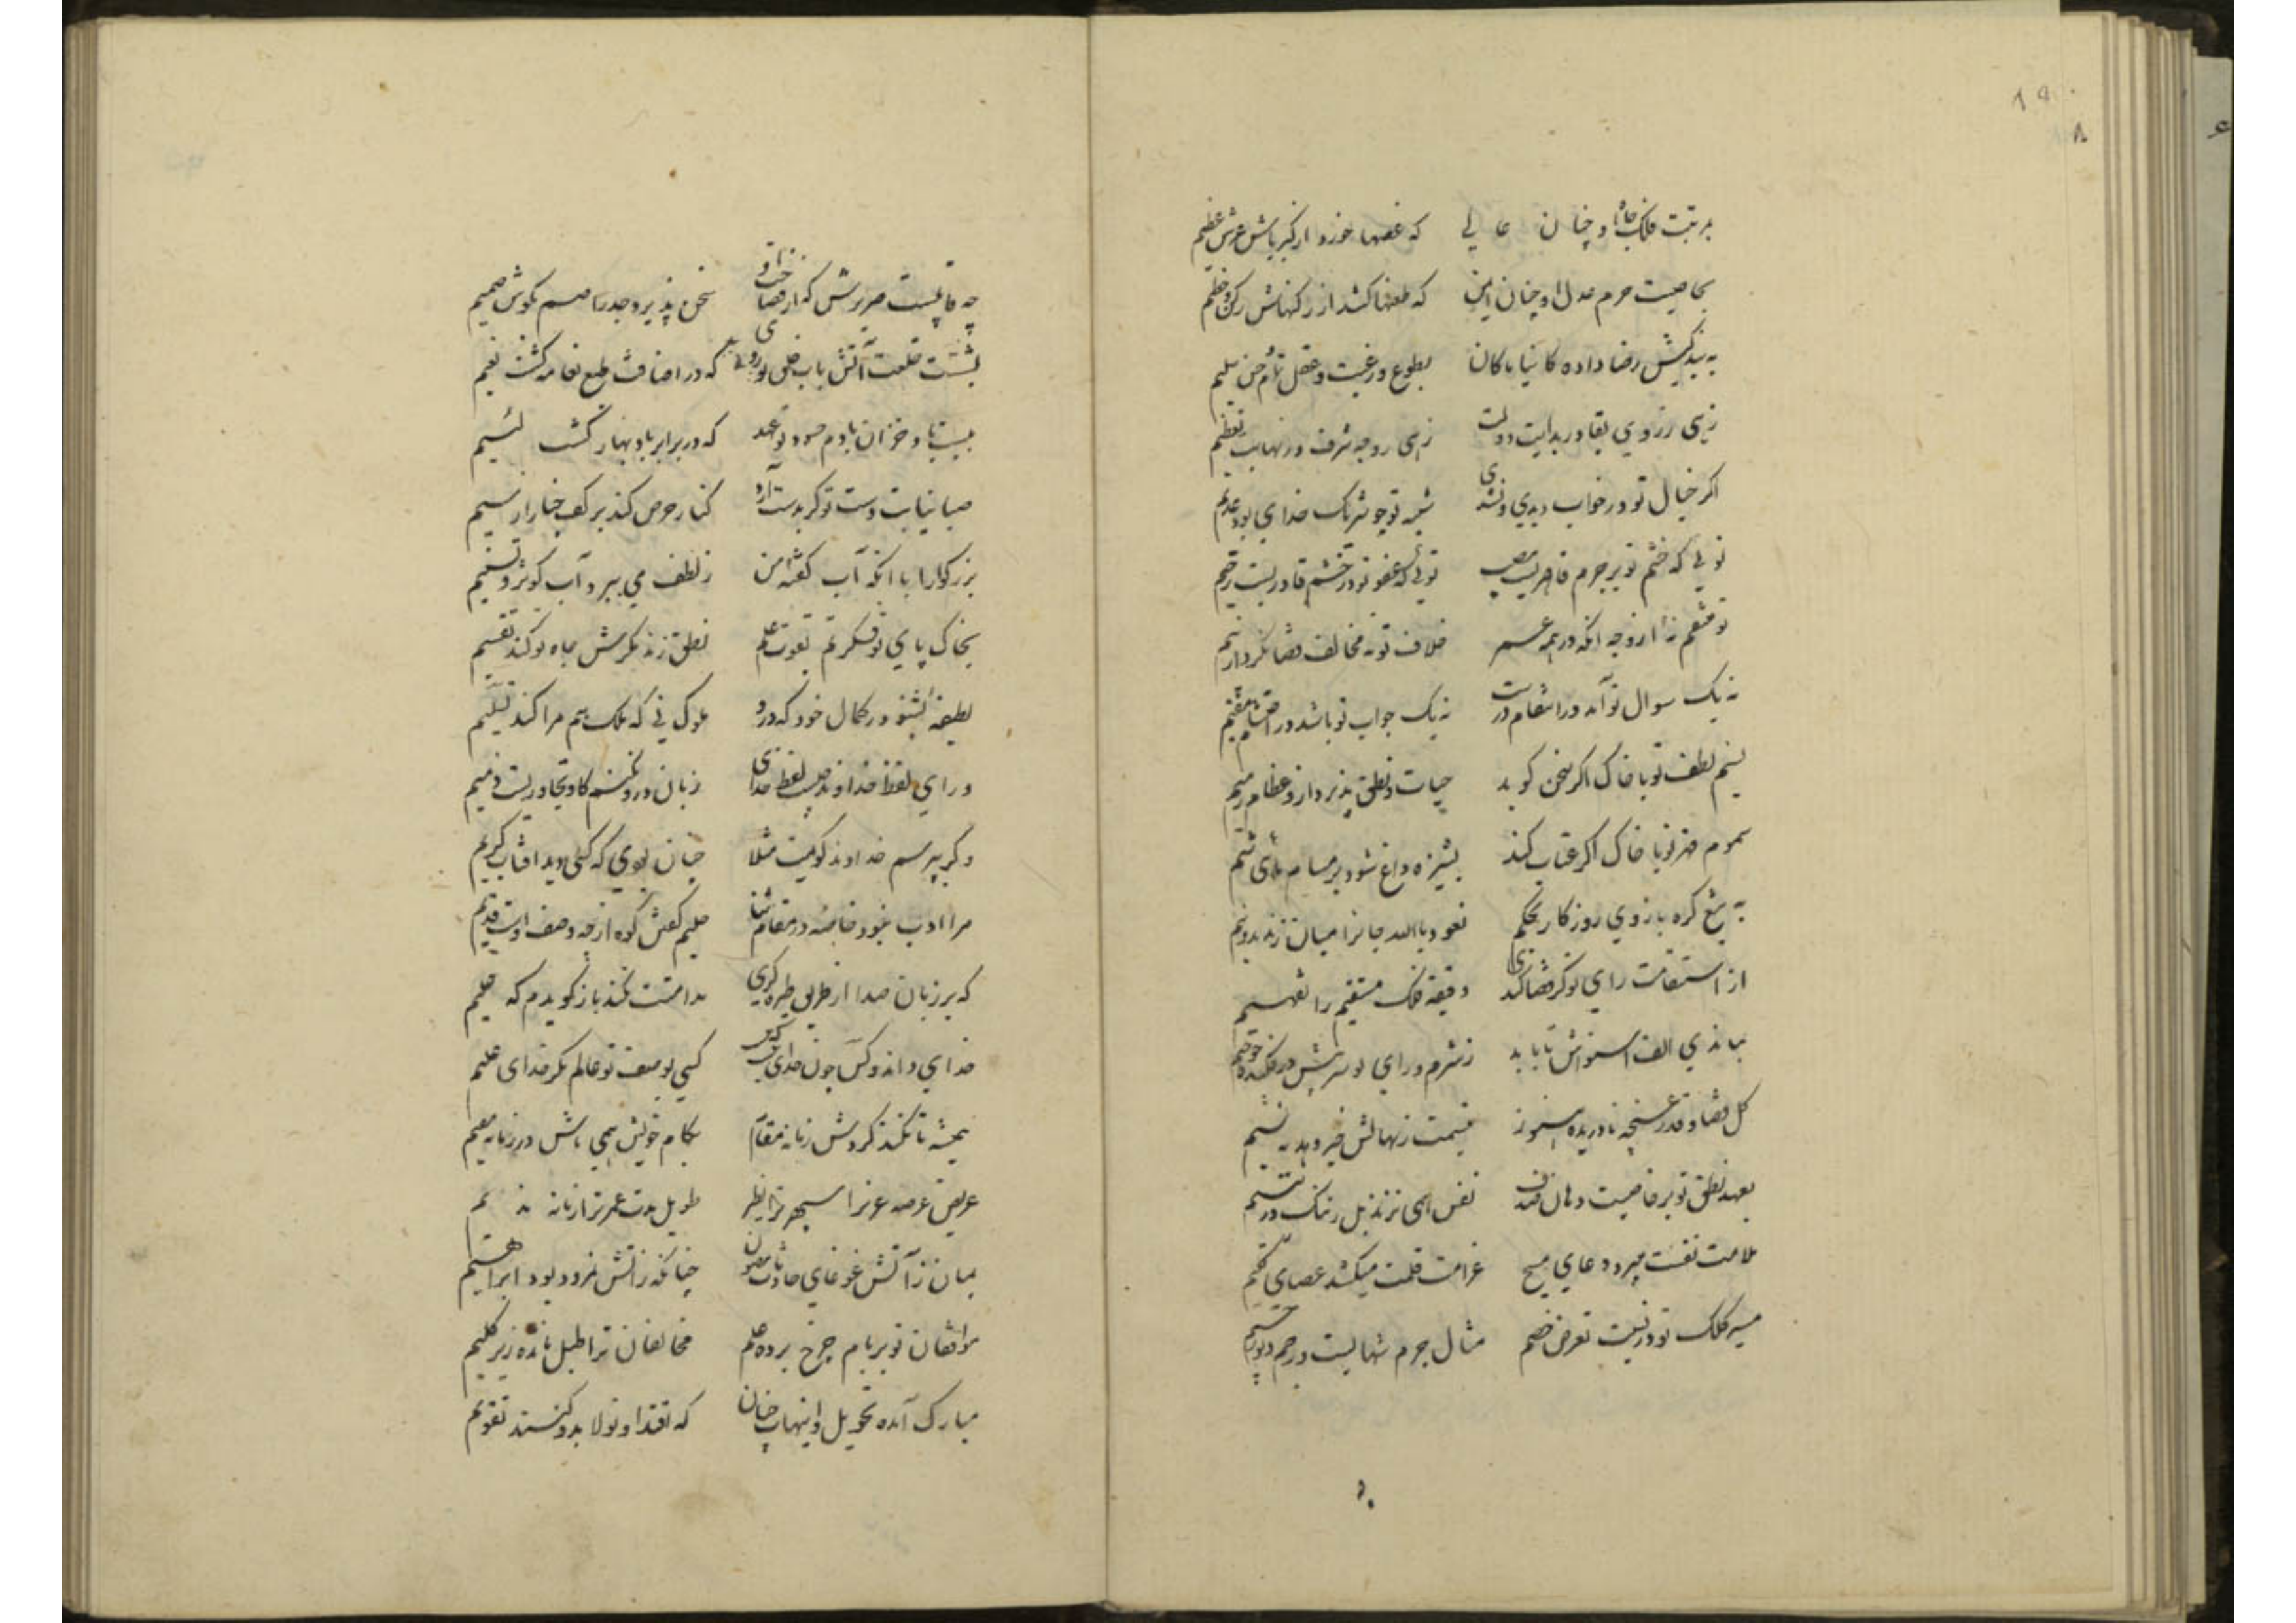 برتبت فلک جاه او چنان عالی که غصها خورد از کبریاش عرش عظیم
بخاصیت حرم عدل او چنان ایمن که طعنها کشد از رکنهاش رکن و حطیم
به بندگیش رضا داده کائنا ما کان بطوع و رغبت و عقل تمام و حس سلیم
زهی ز روی بقا در بدایت دولت زهی ز وجه شرف در نهایت تعظیم
اگر خیال تو در خواب دیدی و نشدی شبیه تو چو شریک خدای بود عدیم
تویی که خشم تو بر جرم قاهریست مصیب تویی که عفو تو در خشم قادریست رحیم
تو منتقم نه از وجه آنکه در همه عمر خلاف تو نه مخالف قضا نکرد از بیم
نه یک سوال تو آید در انتقام درست نه یک جواب تو باشد در احتشام سقیم
نسیم لطف تو با خاک اگر سخن گوید حیات و نطق پذیرد ازو عظام رمیم
سموم قهر تو با خاک اگر عتاب کند پشیزه داغ شود بر مسام ماهی شیم
به تیغ گره بازوی روزگار بحکم نعوذ بالله جانرا میان زند بدو نیم
از استقامت رای تو گر قضا کندی دقیقه فلک مستقیم را تقسیم
بماندی الف استواش تا باید ز شرم و رای تو سر پیش درفکنده چو جیم
گل قضا و قدر غنچه نا دریده هنوز قسمت زنهالش خبر دهد به نسیم
بعهد نطق تو بر خاصیت دهان صدف نفس همی نزند بل زننگ در یتیم
ملامت نفست میبرد دعای مسیح غرامت قلمت میکشد عصای کلیم
مسیر کلک تو در نسبت تعرض خصم مثال جرم شهابست و رجم دیو رجیم
چه قایلست صریرش که از فصاحت او سخن پذیرد جدر اصم بگوش صمیم
بشست قلعت آتش بآب خلق تو روی که در اضافت طبع نعامه گشت نعیم
ببست باد خزان با دم حسود تو عهد که در برابر باد بهار گشت لئیم
صبا نیابت دست تو گر بدست آرد کنار حرص کند پر کف چنار از سیم
بزرگوارا با آنکه آب گفته من ز لطف می ببرد آب کوثر و تسنیم
بخاک پای تو فکرتم بقوت علم نطق زند بگرش جاه تو کند تقسیم
لطیفه بشنو در کمال خود که درو ملوک نی که ملک هم مرا کند تسلیم
ورای لفظ خداوند چیست لفظ خدای زبان درو نکنم کاو تجاوزیست ذمیم
وگر بپرسم خداوند گویمت مثلا چنان بوی که کسی دید آفتاب کریم
مرا ادب نبود خاصه در مقام ثنا حلیم گفتش گو ارچه وصف اوست قدیم
که بر زبان صدا از طریق طره گری ملامتت نکند باز گویدم که حلیم
خدای داند و کس چون خدای نیست کسی بوصف تو عالم مگر خدای علیم
همیشه تا نکند گردش زمانه مقام بکام خویش همی باش در زمانه مقیم
عریض عرصه عز ترا سپهر نظیر طویل مدت عمر ترا زمانه ندیم
بمان ز آتش غوغای حادثات مصون چنانکه ز آتش نمرود بود ابراهیم
موافقان تو بر بام چرخ برده علم مخالفان ترا طبل مانده زیر گلیم
مبارک آمده تحویل و اینهات چنان که اقتدا و تولا بدو کنند تقویم